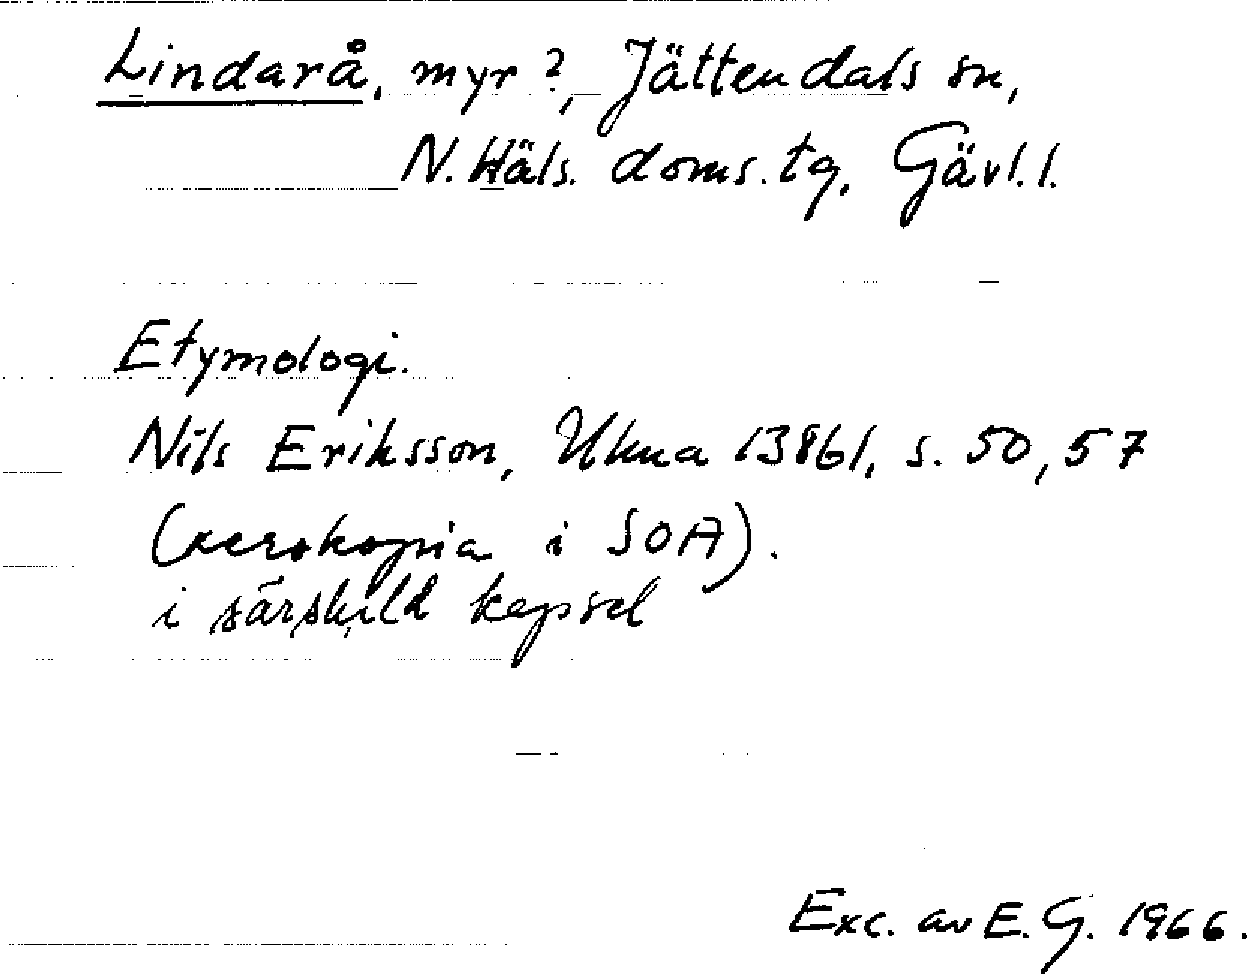 Lindarå, myr?, Jättendals sn,
N. Häls. doms. tg, Gävl. l.
Etymologi.
Nils Eriksson, Ukna 13861, s. 50, 57
(xerokopia i SOA).
i särskild kapsel
Exc. av E. G. 1966.